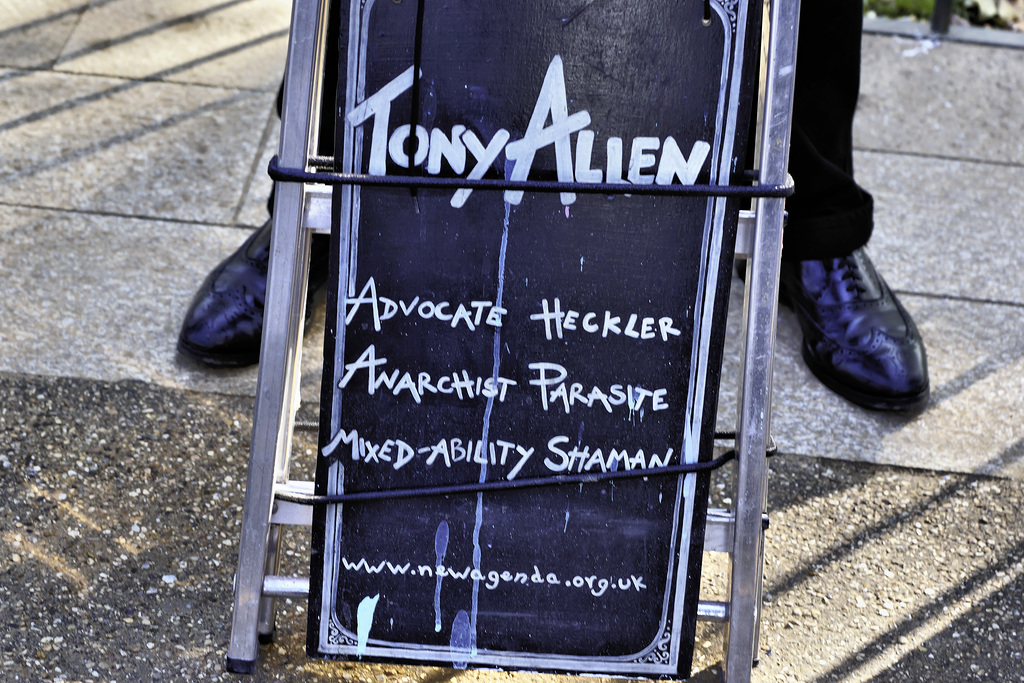 Tony Allen
Advocate Heckler
Anarchist Parasite
Mixed-Ability Shaman
www.newagenda.org.uk